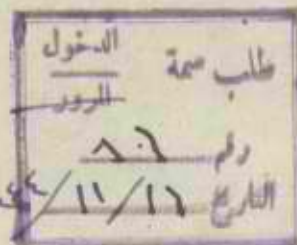 طلب سمة الدخول
المرور
رقم ٨٠٦
التاريخ ١٦/١١/٤٤